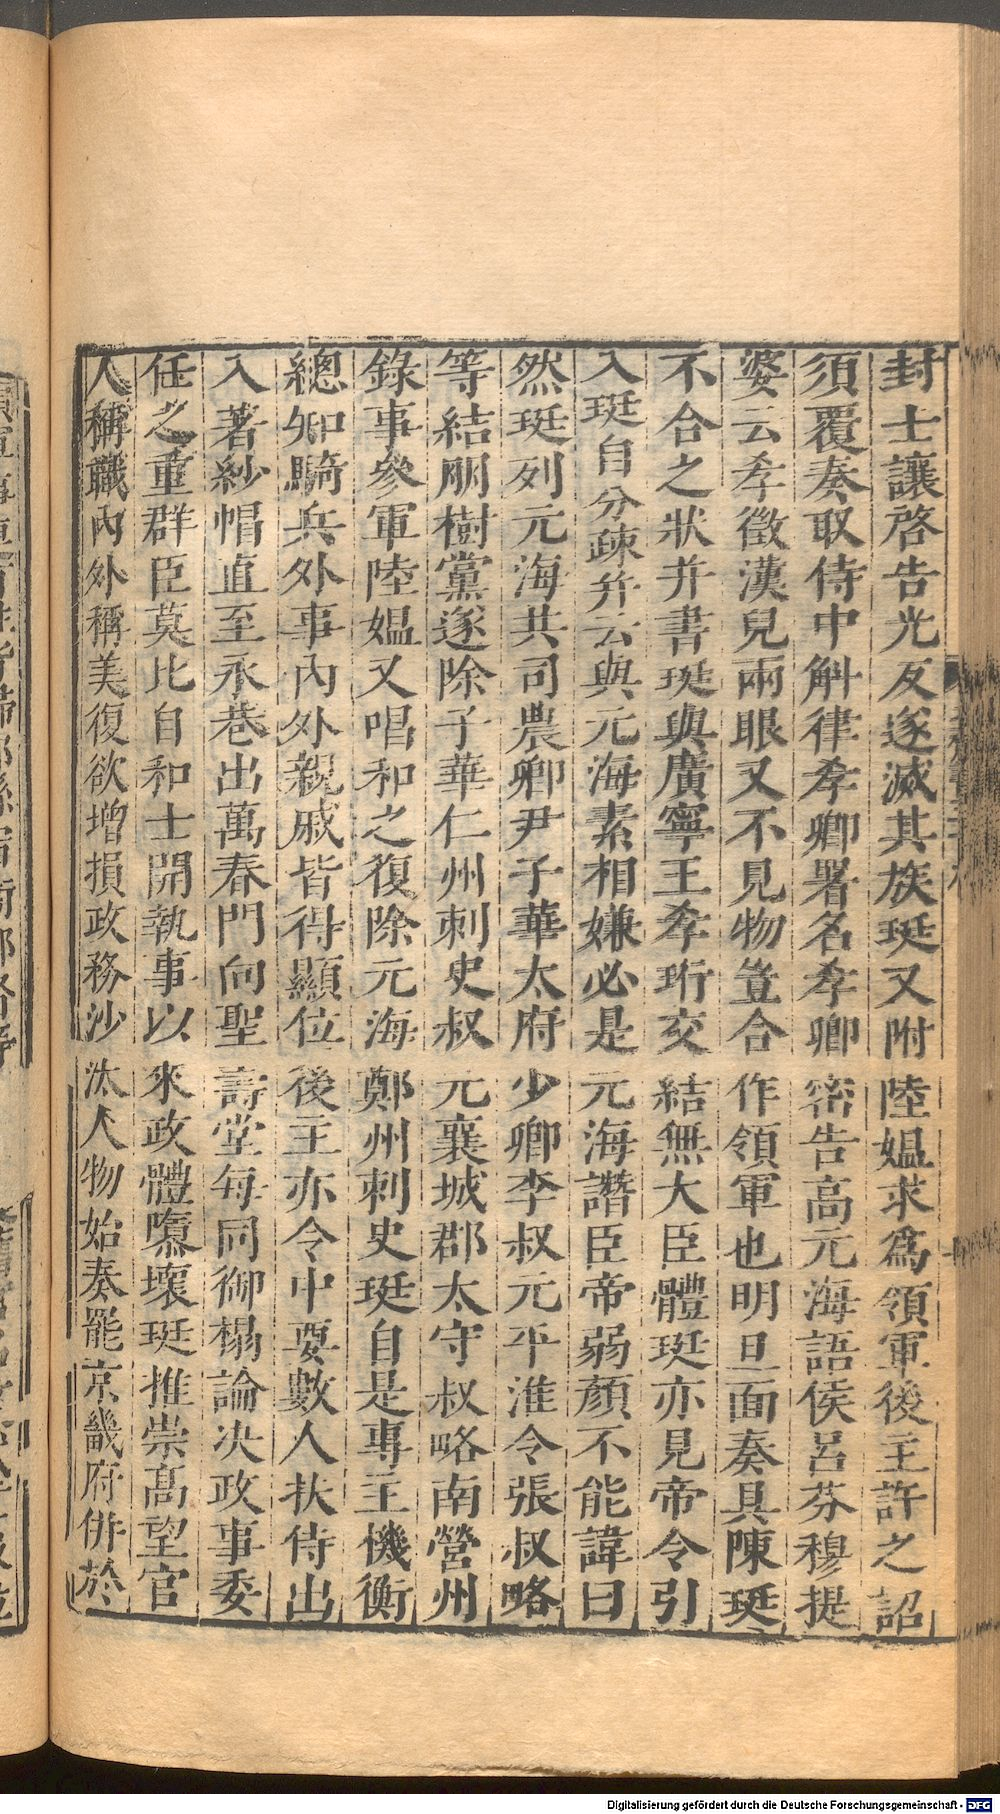 封士讓啓告光反遂滅其族珽又附陸媼求爲領軍後主許之詔
須覆奏取侍中斛律孝卿署名孝卿密告高元海語侯呂芬穆提
婆云孝徵漢兒兩眼又不見物豈合作領軍也明旦面奏具陳珽
不合之狀并書珽與廣寧王孝珩交結無大臣體珽亦見帝令引
入珽自分疎并云與元海素相嫌必是元海譖臣帝弱顏不能諱曰
然珽列元海共司農卿尹子華太府少卿李叔元平淮令張叔略
等結朋樹黨遂除子華仁州刺史叔元襄城郡太守叔略南營州
錄事參軍陸媼又唱和之復除元海鄭州刺史珽自是專主機衡
總知騎兵外事內外親戚皆得顯位後主亦令中要數人扶侍出
入著紗帽直至永巷出萬春門向聖壽堂每同御榻論决政事委
任之重群臣莫比自和士開執事以來政體隳壞珽推崇高望官
人稱職內外稱美復欲增損政務沙汰人物始奏罷京畿府併於
Digitalisierung gefördert durch die Deutsche Forschungsgemeinschaft - DFG